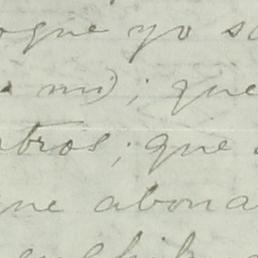 ogue yo s
mi); que
tros; que
ue abona